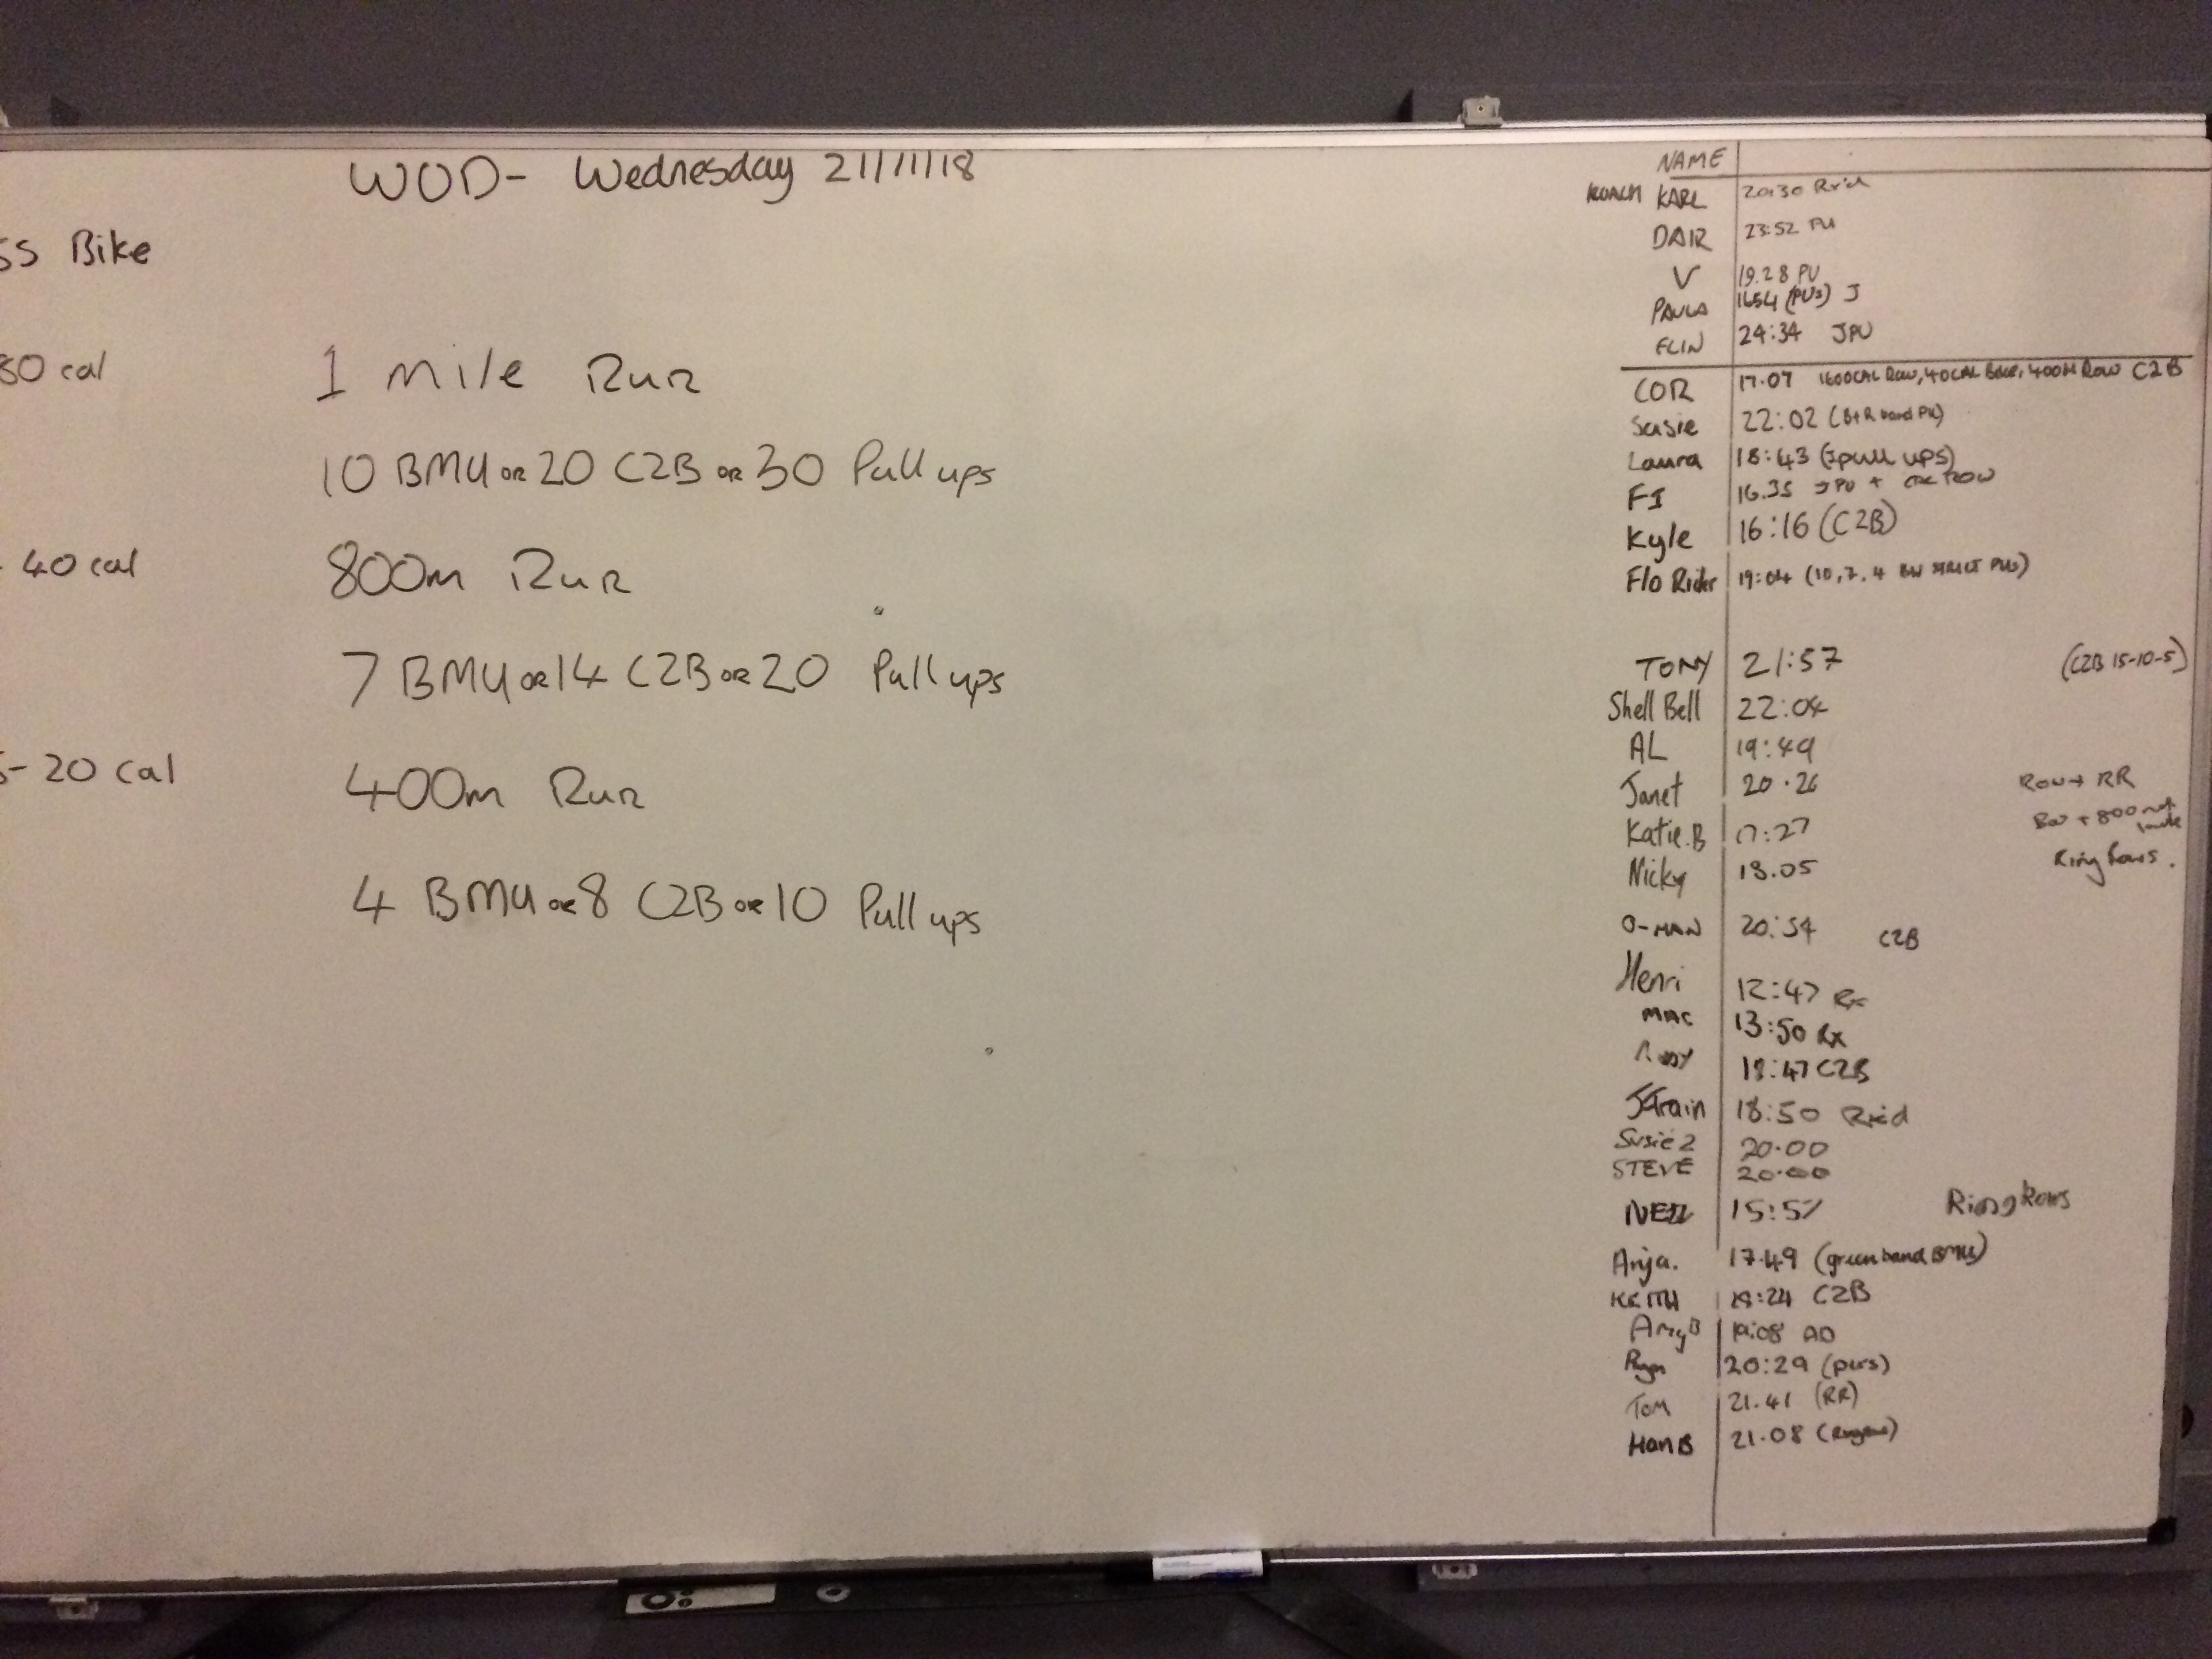 WOD- Wednesday 21/11/18
SS Bike
1 Mile Run
80 cal
10 BMU or 20 C2B or 30 Pull ups
800m Run
40 cal
7 BMU or 14 C2B or 20 Pull ups
400m Run
- 20 cal
4 BMU or 8 C2B or 10 Pull ups
NAME
KOACH KARL 20:30 Rx'd
DAIR 23:52 PU
V 19.28 PU
PAULA 1654 (PUs) J
ELIN 24:34 JPU
COR 17.07 1600CAL ROW, 40CAL BIKE, 400M ROW C2B
Susie 22:02 (B+R band PU)
Laura 18:43 (Jpull ups)
FI 16.35 JPU + ROW
Kyle 16:16 (C2B)
Flo Rider 19:04 (10, 7, 4 BW STRICT PUs)
TONY 21:57 (C2B 15-10-5)
Shell Bell 22:04
AL 19:49
Janet 20.26 Row + RR
Katie.B 17:27 + 800
Nicky 18.05 Ring Rows.
O-MAN 20:54 C2B
Henri 12:47 Rx
MAC 13:50 Rx
18:47 C2B
JTrain 18:50 Rx'd
Susie 2 20.00
STEVE 20.00
NEIL 15:57 Ring Rows
Anja. 17.49 (green band BMU)
KEITH :24 C2B
AmyB 19:08 AD
Ryan 20:29 (purs)
Tom 21.41 (RR)
HanB 21.08